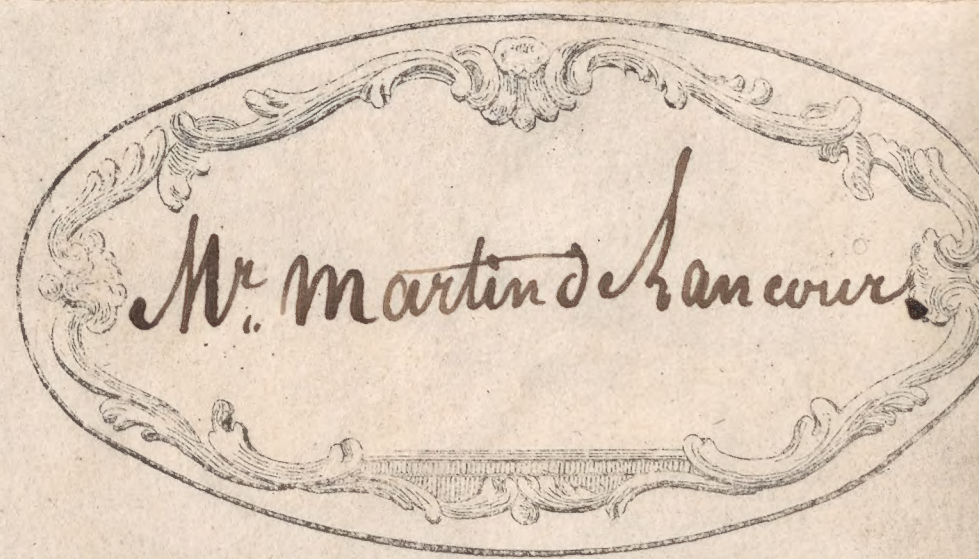 Mr. Martin de Rancour.